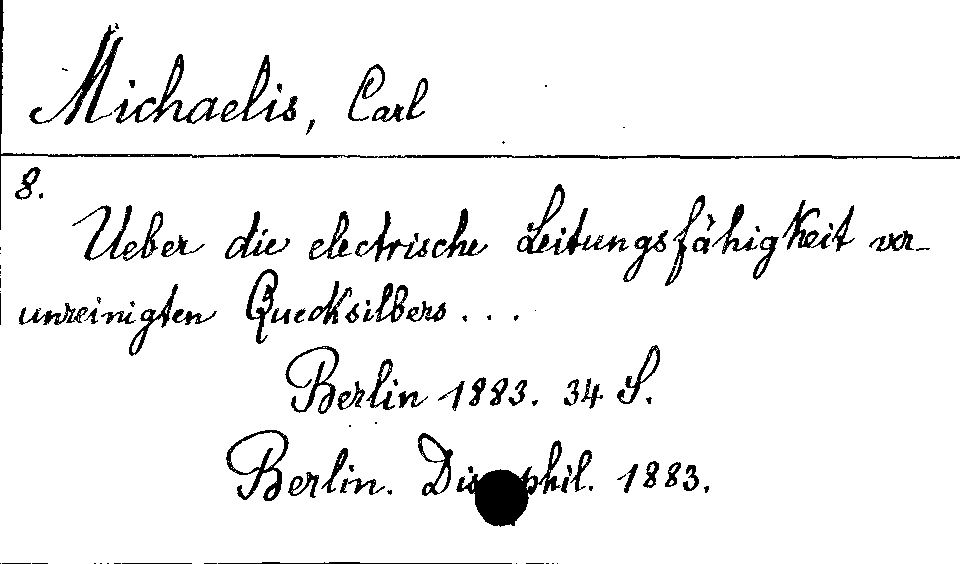 Michaelis, Carl
8.
Ueber die electrische Leitungsfähigkeit ver-
unreinigten Quecksilbers...
Berlin 1883. 34 S.
Berlin. Dis phil. 1883.